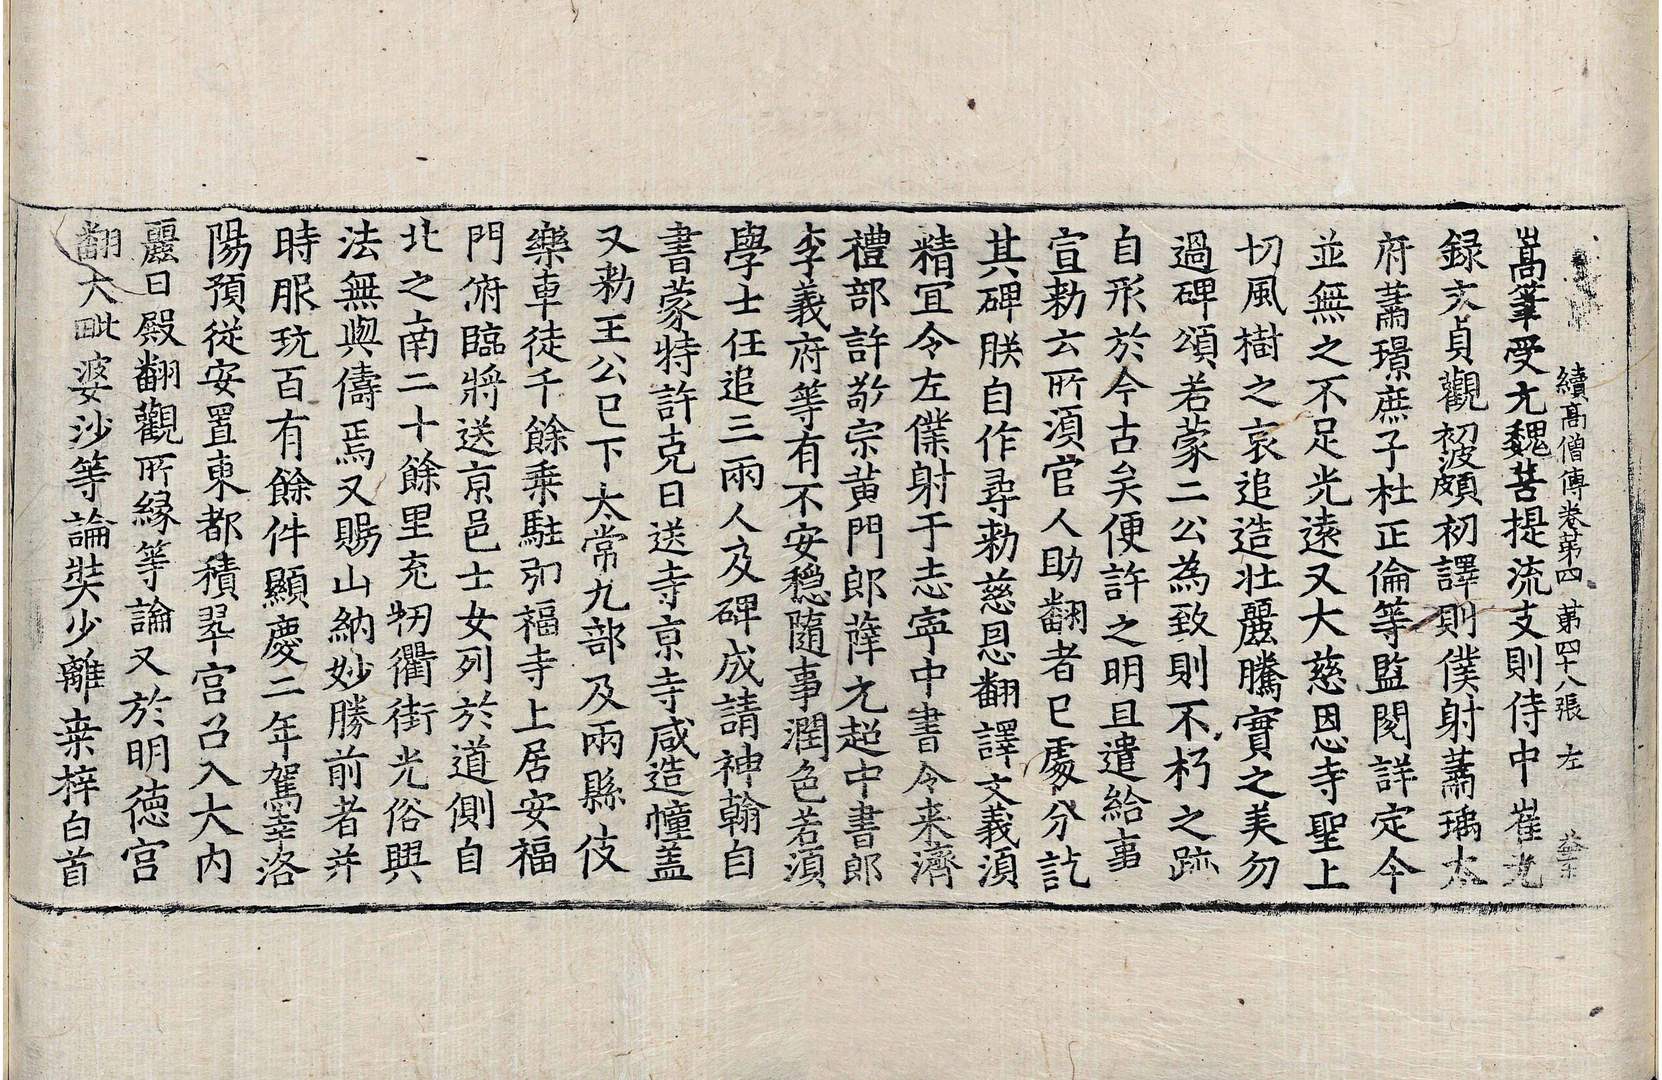 續高僧傳卷第四 第四十八張 左
嵩筆受尤魏菩提流支則侍中崔光
録文貞觀初波頗初譯則僕射蕭瑀太
府蕭璟庶子杜正倫等監閱詳定今
並無之不足光逺又大慈恩寺聖上
切風樹之哀追造壯麗騰實之美勿
過碑頌若蒙二公為致則不朽之跡
自形於今古矣便許之明旦遣給事
宣勑云所須官人助翻者已處分訖
其碑朕自作尋勑慈恩翻譯文義須
精宜令左僕射于志寧中書令来濟
禮部許敬宗黄門郎薛元超中書郎
李義府等有不安穏隨事潤色若須
學士任追三兩人及碑成請神翰自
書蒙特許克日送寺京寺咸造幢盖
又勑王公已下太常九部及兩縣伎
樂車徒千餘乗駐弘福寺上居安福
門俯臨將送京邑士女列於道側自
北之南二十餘里充牣衢街光俗興
法無與儔焉又賜山納妙勝前者并
時服玩百有餘件顯慶二年駕幸洛
陽預從安置東都積翠宫召入大内
麗日殿翻觀所縁等論又於明德宫
翻大毗婆沙等論奘少離桒梓白首